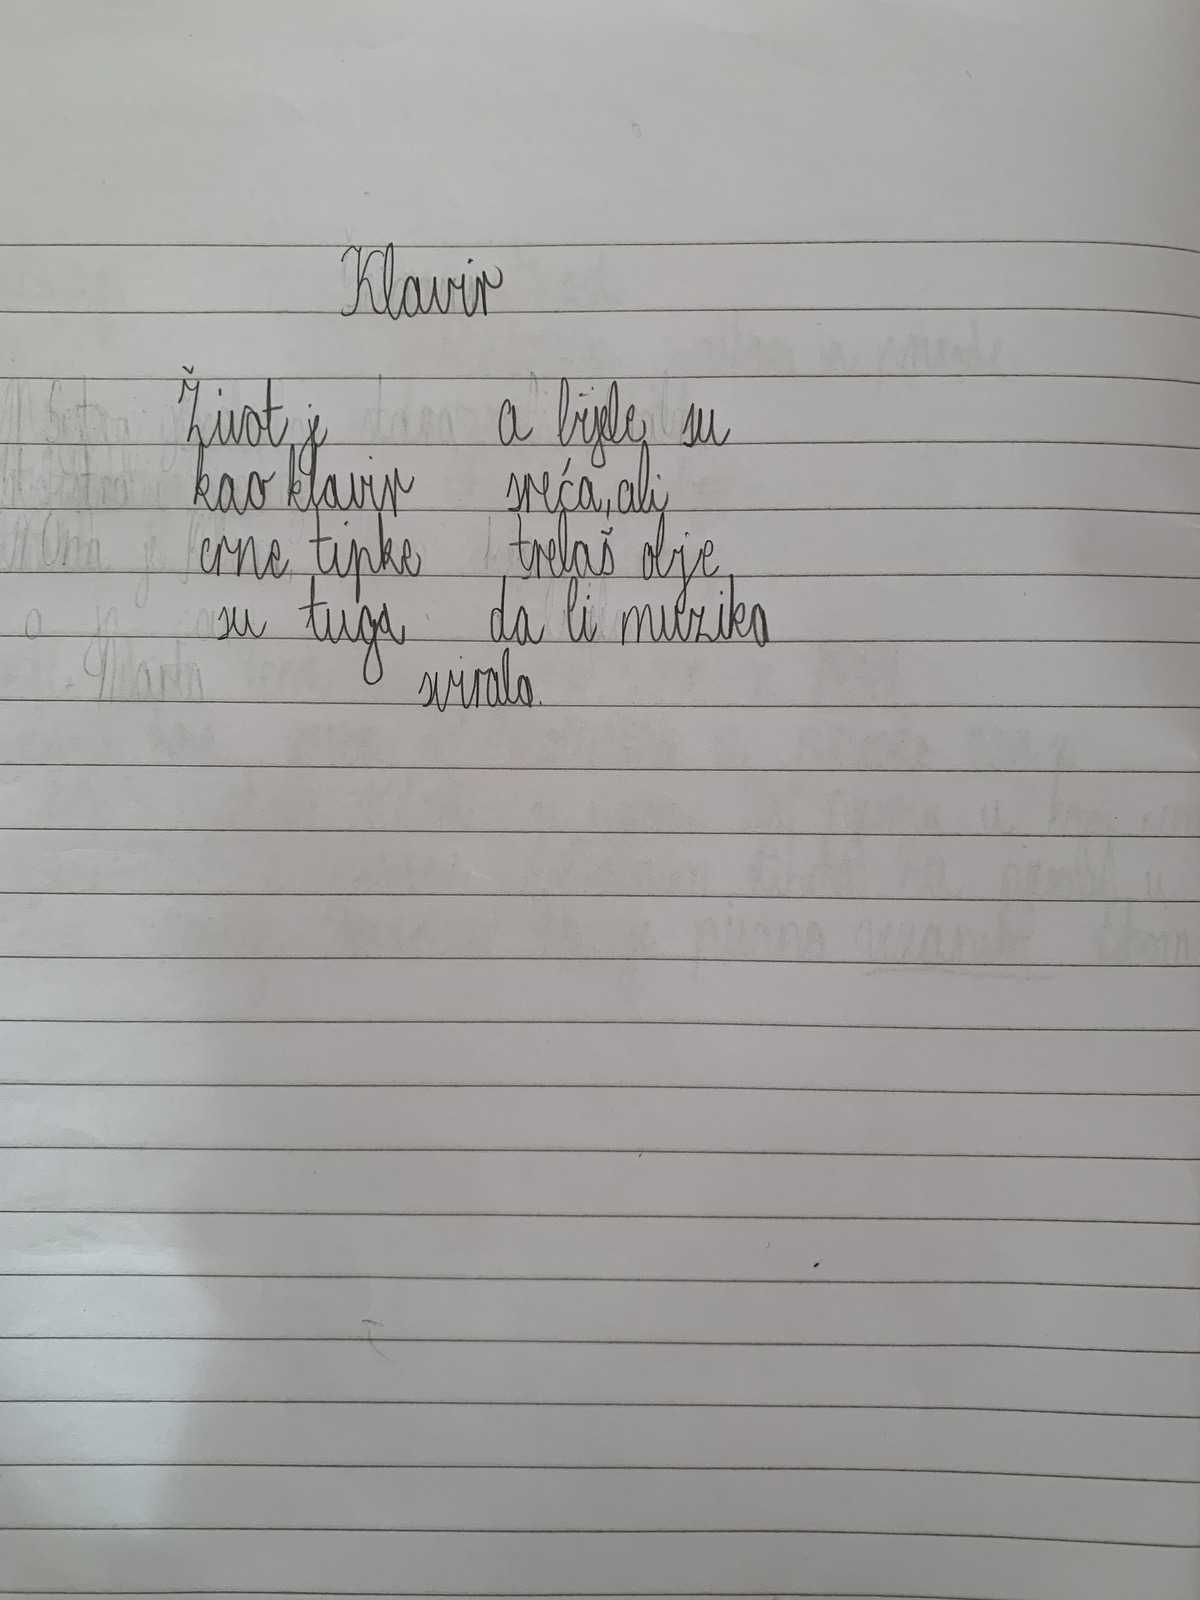 Klavir
Život je
kao klavir
crne tipke
su tuga
a bijele su
sreća, ali
trebaš obje
da bi muzika
svirala.